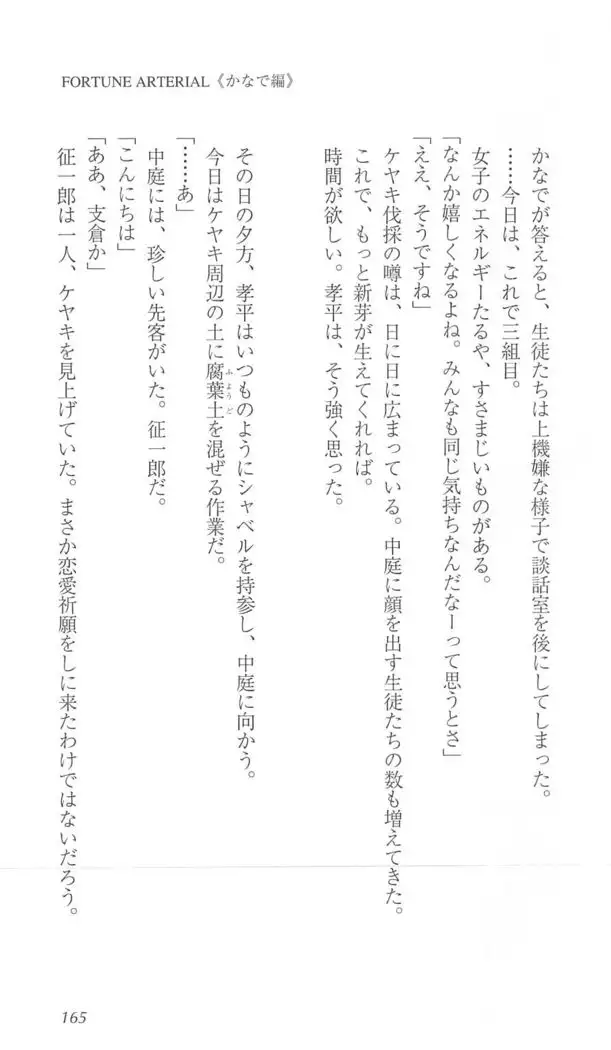 FORTUNE ARTERIAL《かなで編》
かなでが答えると、生徒たちは上機嫌な様子で談話室を後にしてしまった。
……今日は、これで三組目。
女子のエネルギーたるや、すさまじいものがある。
「なんか嬉しくなるよね。みんなも同じ気持ちなんだなーって思うとさ」
「ええ、そうですね」
ケヤキ伐採の噂は、日に日に広まっている。中庭に顔を出す生徒たちの数も増えてきた。
これで、もっと新芽が生えてくれれば。
時間が欲しい。孝平は、そう強く思った。
その日の夕方、孝平はいつものようにシャベルを持参し、中庭に向かう。
今日はケヤキ周辺の土に腐葉土を混ぜる作業だ。
ふようど
「……あ」
中庭には、珍しい先客がいた。征一郎だ。
「こんにちは」
「ああ、支倉か」
征一郎は一人、ケヤキを見上げていた。まさか恋愛祈願をしに来たわけではないだろう。
165